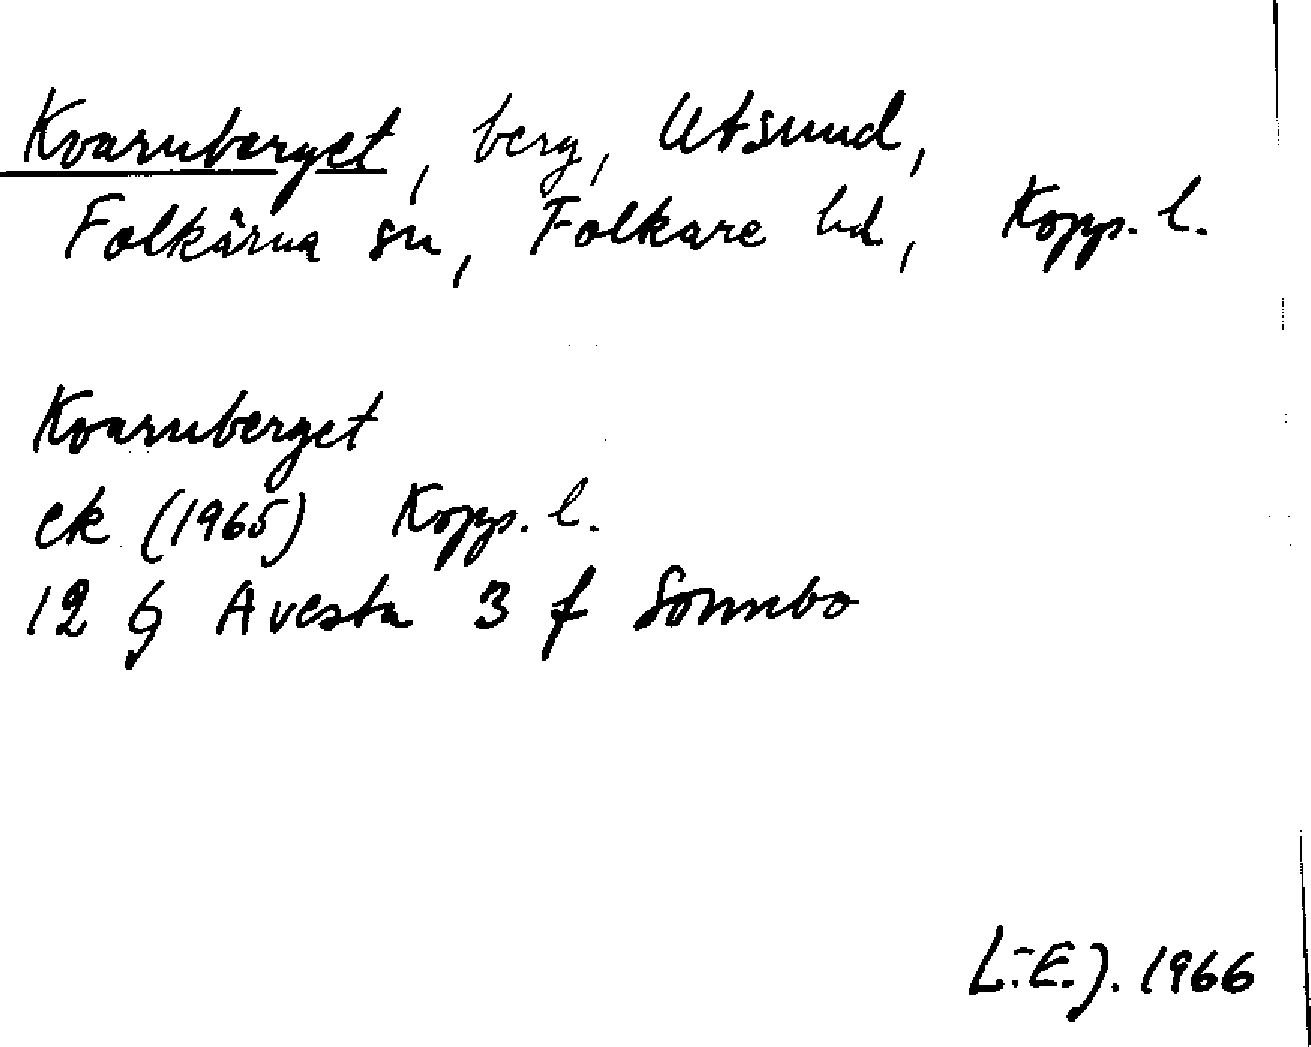 Kvarnberget, berg, Utsund,
Folkärna sn, Folkare hd, Kopp. l.
Kvarnberget
ek (1965) Kopp. l.
12 G Avesta 3 f Sonnbo
L.-E.J. 1966